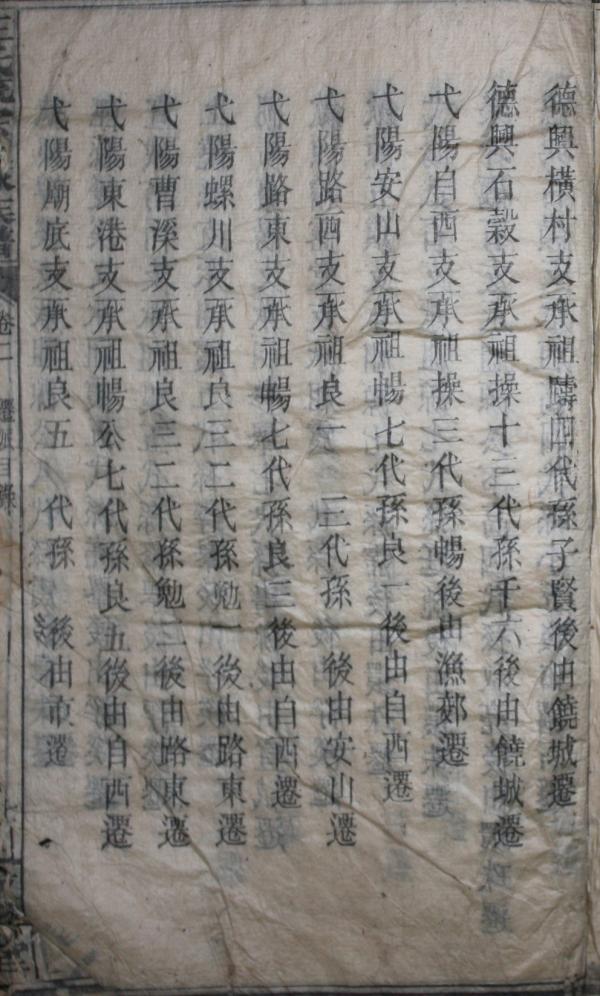 德興橫村支承祖疇四代孫子賢後由饒城遷
德興石穀支承祖操十三代孫千六後由饒城遷
弋陽自西支承祖操三代孫暢後由漁郊遷
弋陽安山支承祖暢七代孫良一後由自西遷
弋陽路西支承祖良一 三代孫 後由安山遷
弋陽路東支承祖暢七代孫良三後由自西遷
弋陽螺川支承祖良三二代孫勉一後由路東遷
弋陽曹溪支承祖良三二代孫勉二後由路東遷
弋陽東港支承祖暢公七代孫良五後由自西遷
弋陽廟底支承祖良五 代孫 後由市遷
卷一 遷派目錄